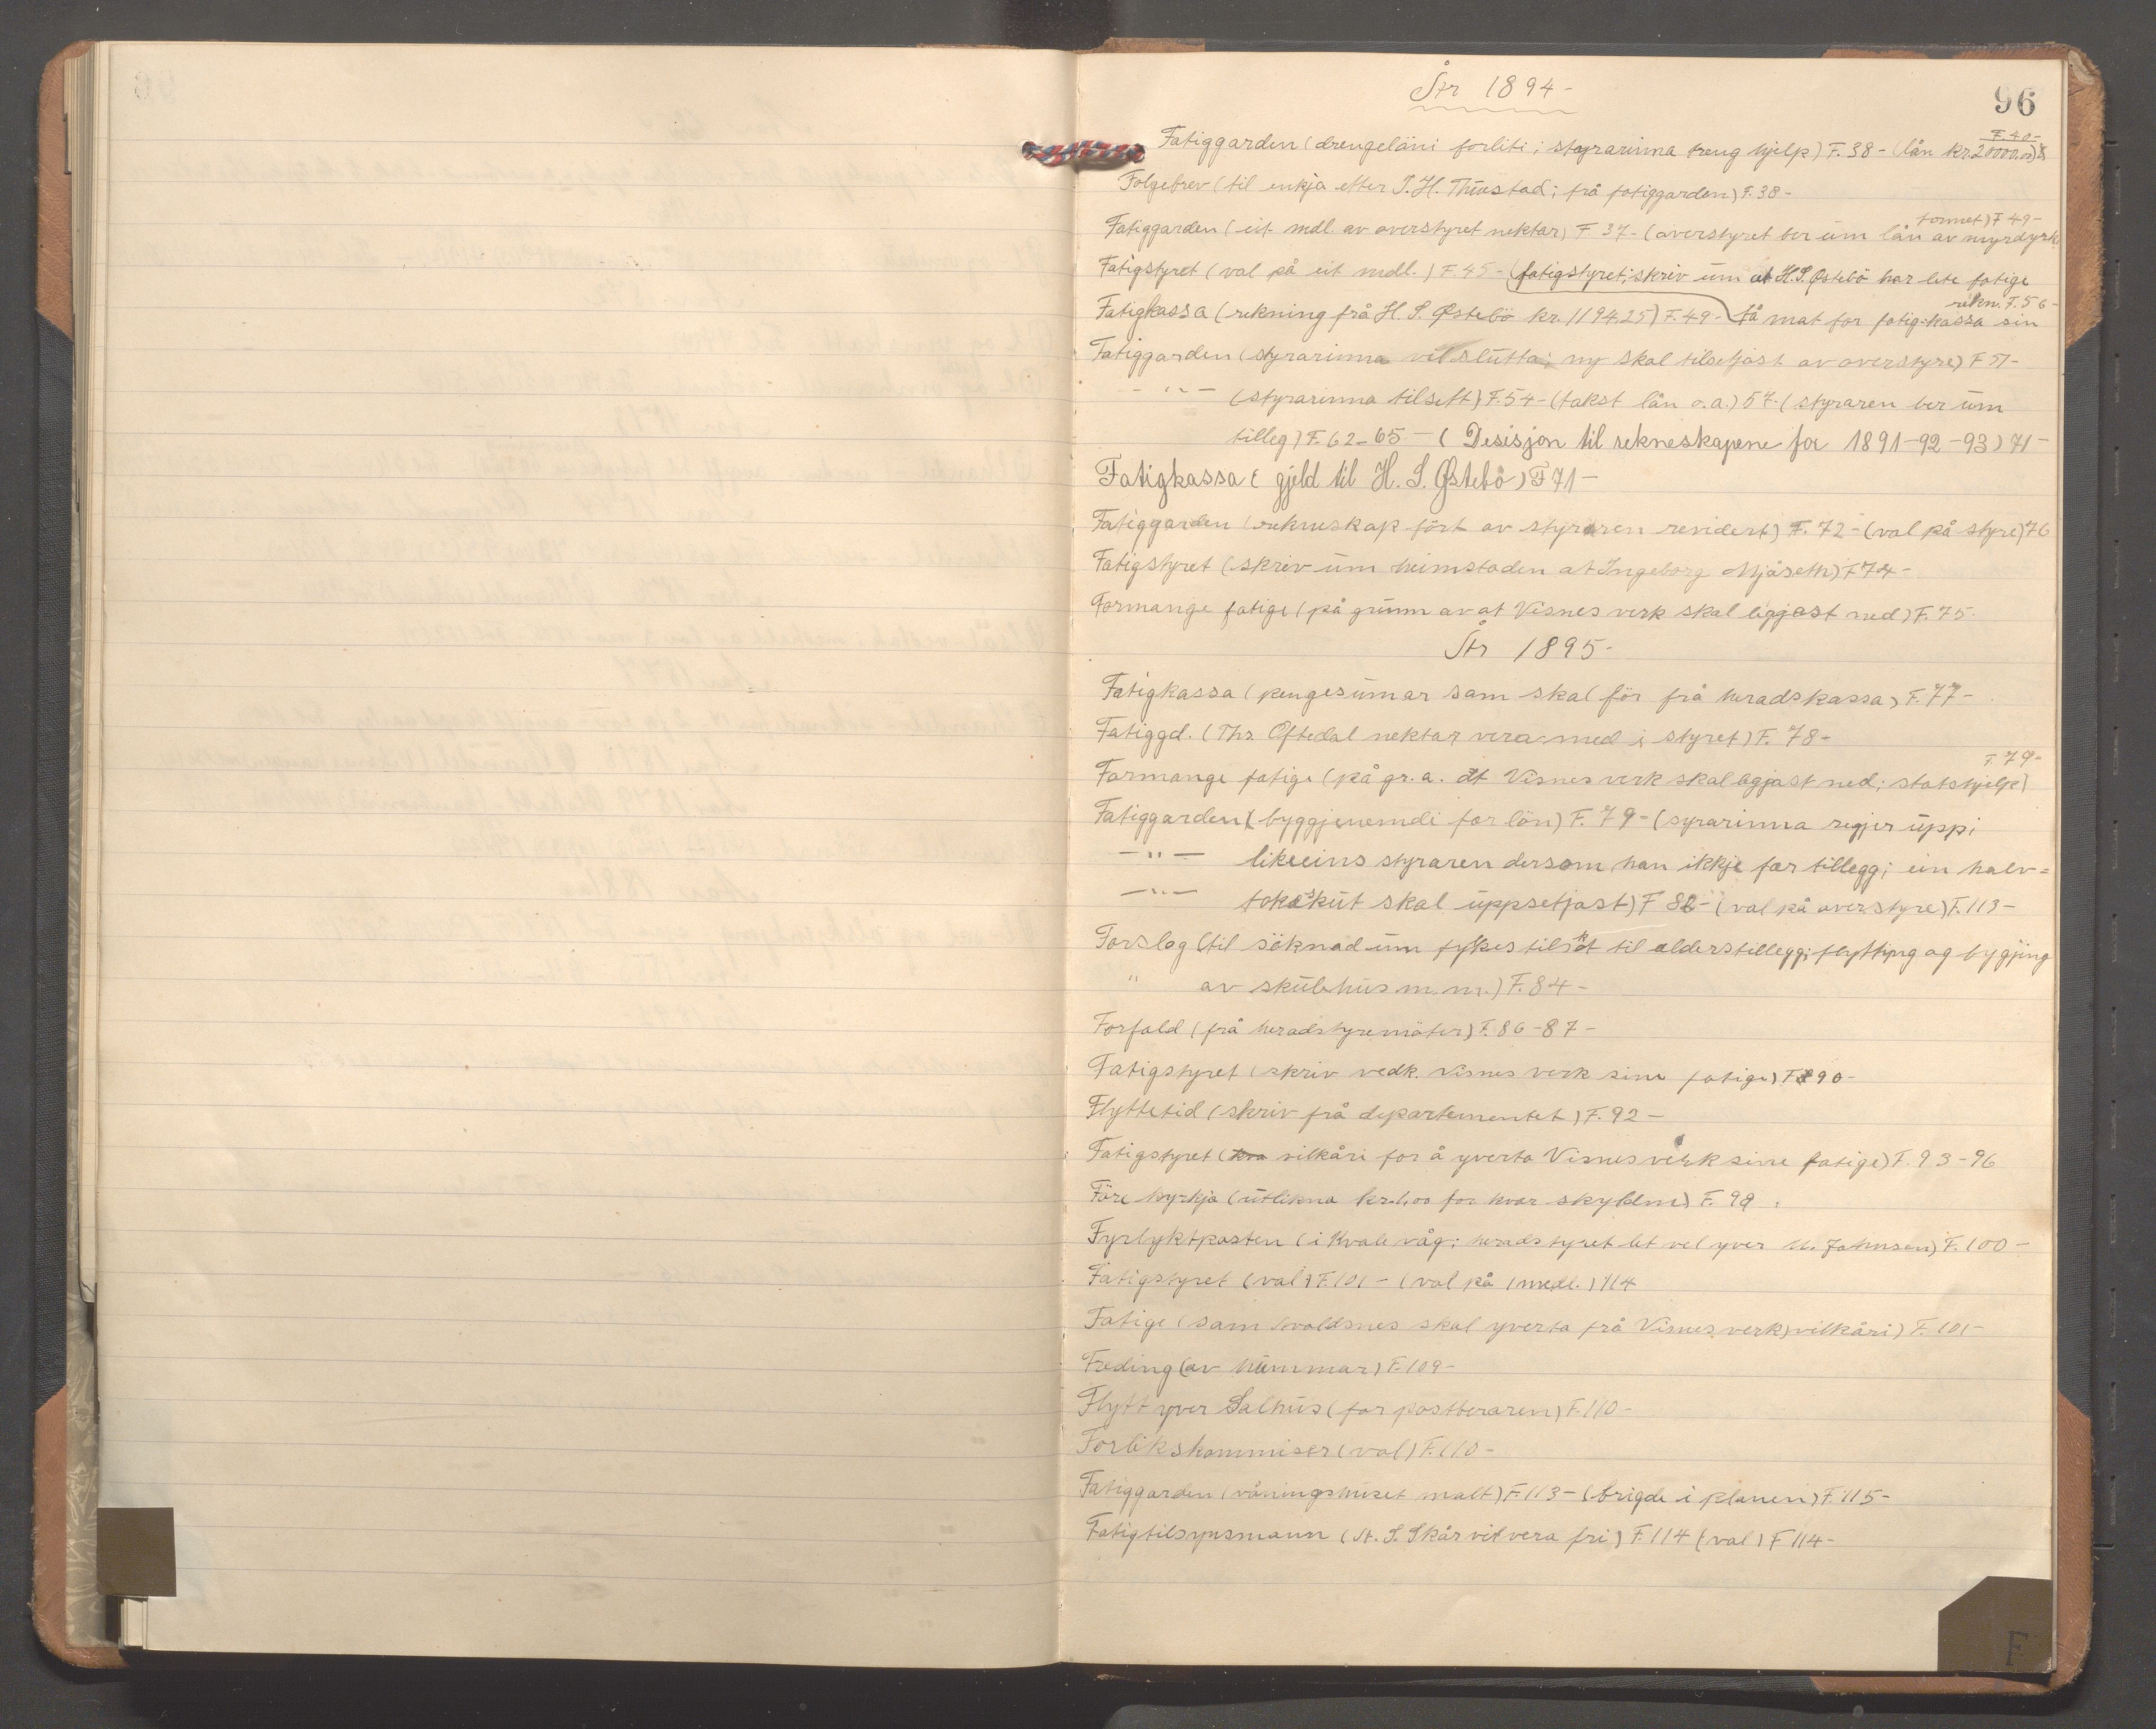 96
År 1894-
F. 40-
Fatiggarden (drengeläni forliti; styrarinna treng hjelp) F. 38- (lån kr. 20000.00)
Følgebrev (til enkja etter I. H. Thuestad; frå fatiggarden) F. 38-
tonnet) F 49-
Fatiggarden (eit mdl. av overstyret nektar) F 37- (overstyret ber um lån av myrdyrk
Fatigstyret (val på eit mdl.) F 45- (fatigstyret; skriv um at H. S. Østebö har lete fatige
rekn. F. 56-
Fatigkassa (rekning frå H. S. Østebö kr. 1194.25) F. 49- få mat for fatig-kassa sin
Fatiggarden (styrarinna vil slutta; ny skal tilsetjast av overstyre) F 51-
-"- (styrarinna tilsett) F. 54- (takst lån o.a.) 57- (styraren ber um
tilleg) F. 62-65- (Desisjon til rekneskapene for 1891-92-93) 71-
Fatigkassa (gjeld til H. S. Østebö) F 71-
Fatiggarden (rekneskap fört av styraren revidert) F. 72- (val på styre) 76
Fatigstyret (skriv um heimstaden at Ingeborg Mjåseth) F 74-
Formange fatige (på grunn av at Visnes verk skal leggjast ned) F. 75-
År 1895-
Fatigkassa (pengesumar som skal för frå heradskassa) F. 77-
Fatiggd. (Ths. Oftedal nektar vera med i styret) F. 78-
F. 79-
Formange fatige (på gr. a. at Visnes verk skal legjast ned; statshjelp)
Fatiggarden (byggjenemdi for lön) F. 79- (syrarinna segjer uppi
-"- likeeins styraren dersom han ikkje før tillegg; ein halv=
-"- takskut skal uppsetjast) F 82- (val på overstyre) F. 113-
Forslag (til söknad um fylkes tilskot til alderstillegg; flytting og bygjing
" av skulehus m.m.) F. 84-
Forfald (frå heradstyremöter) F. 86-87-
Fatigstyret (skriv vedk. Visnes verk sine fatige) F 90-
Flyttetid (skriv frå departementet) F. 92-
Fatigstyret (vilkåri for å yverta Visnes verk sine fatige) F. 93-96
Före kyrkja (utlikna kr. 1,00 for kvar skyldm) F. 98.
Fyrlyktposten (i Kvalevåg; heradstyret let vel yver M. Johnsen) F. 100-
Fatigstyret (val) F. 101- (val på 1 medl.) 114
Fatige (som Avaldsnes skal yverta frå Visnes verk; vilkåri) F. 101-
Freding (av hummar) F. 109-
Flytt yver Salhus (for postberaren) F. 110-
Forlikskommiser (val) F. 110-
Fatiggarden (våningshuset malt) F. 113- (brigde i planen) F 115-
Fatigtilsynsmann (St. S. Skår vil vera fri) F. 114 (val) F 114-
F